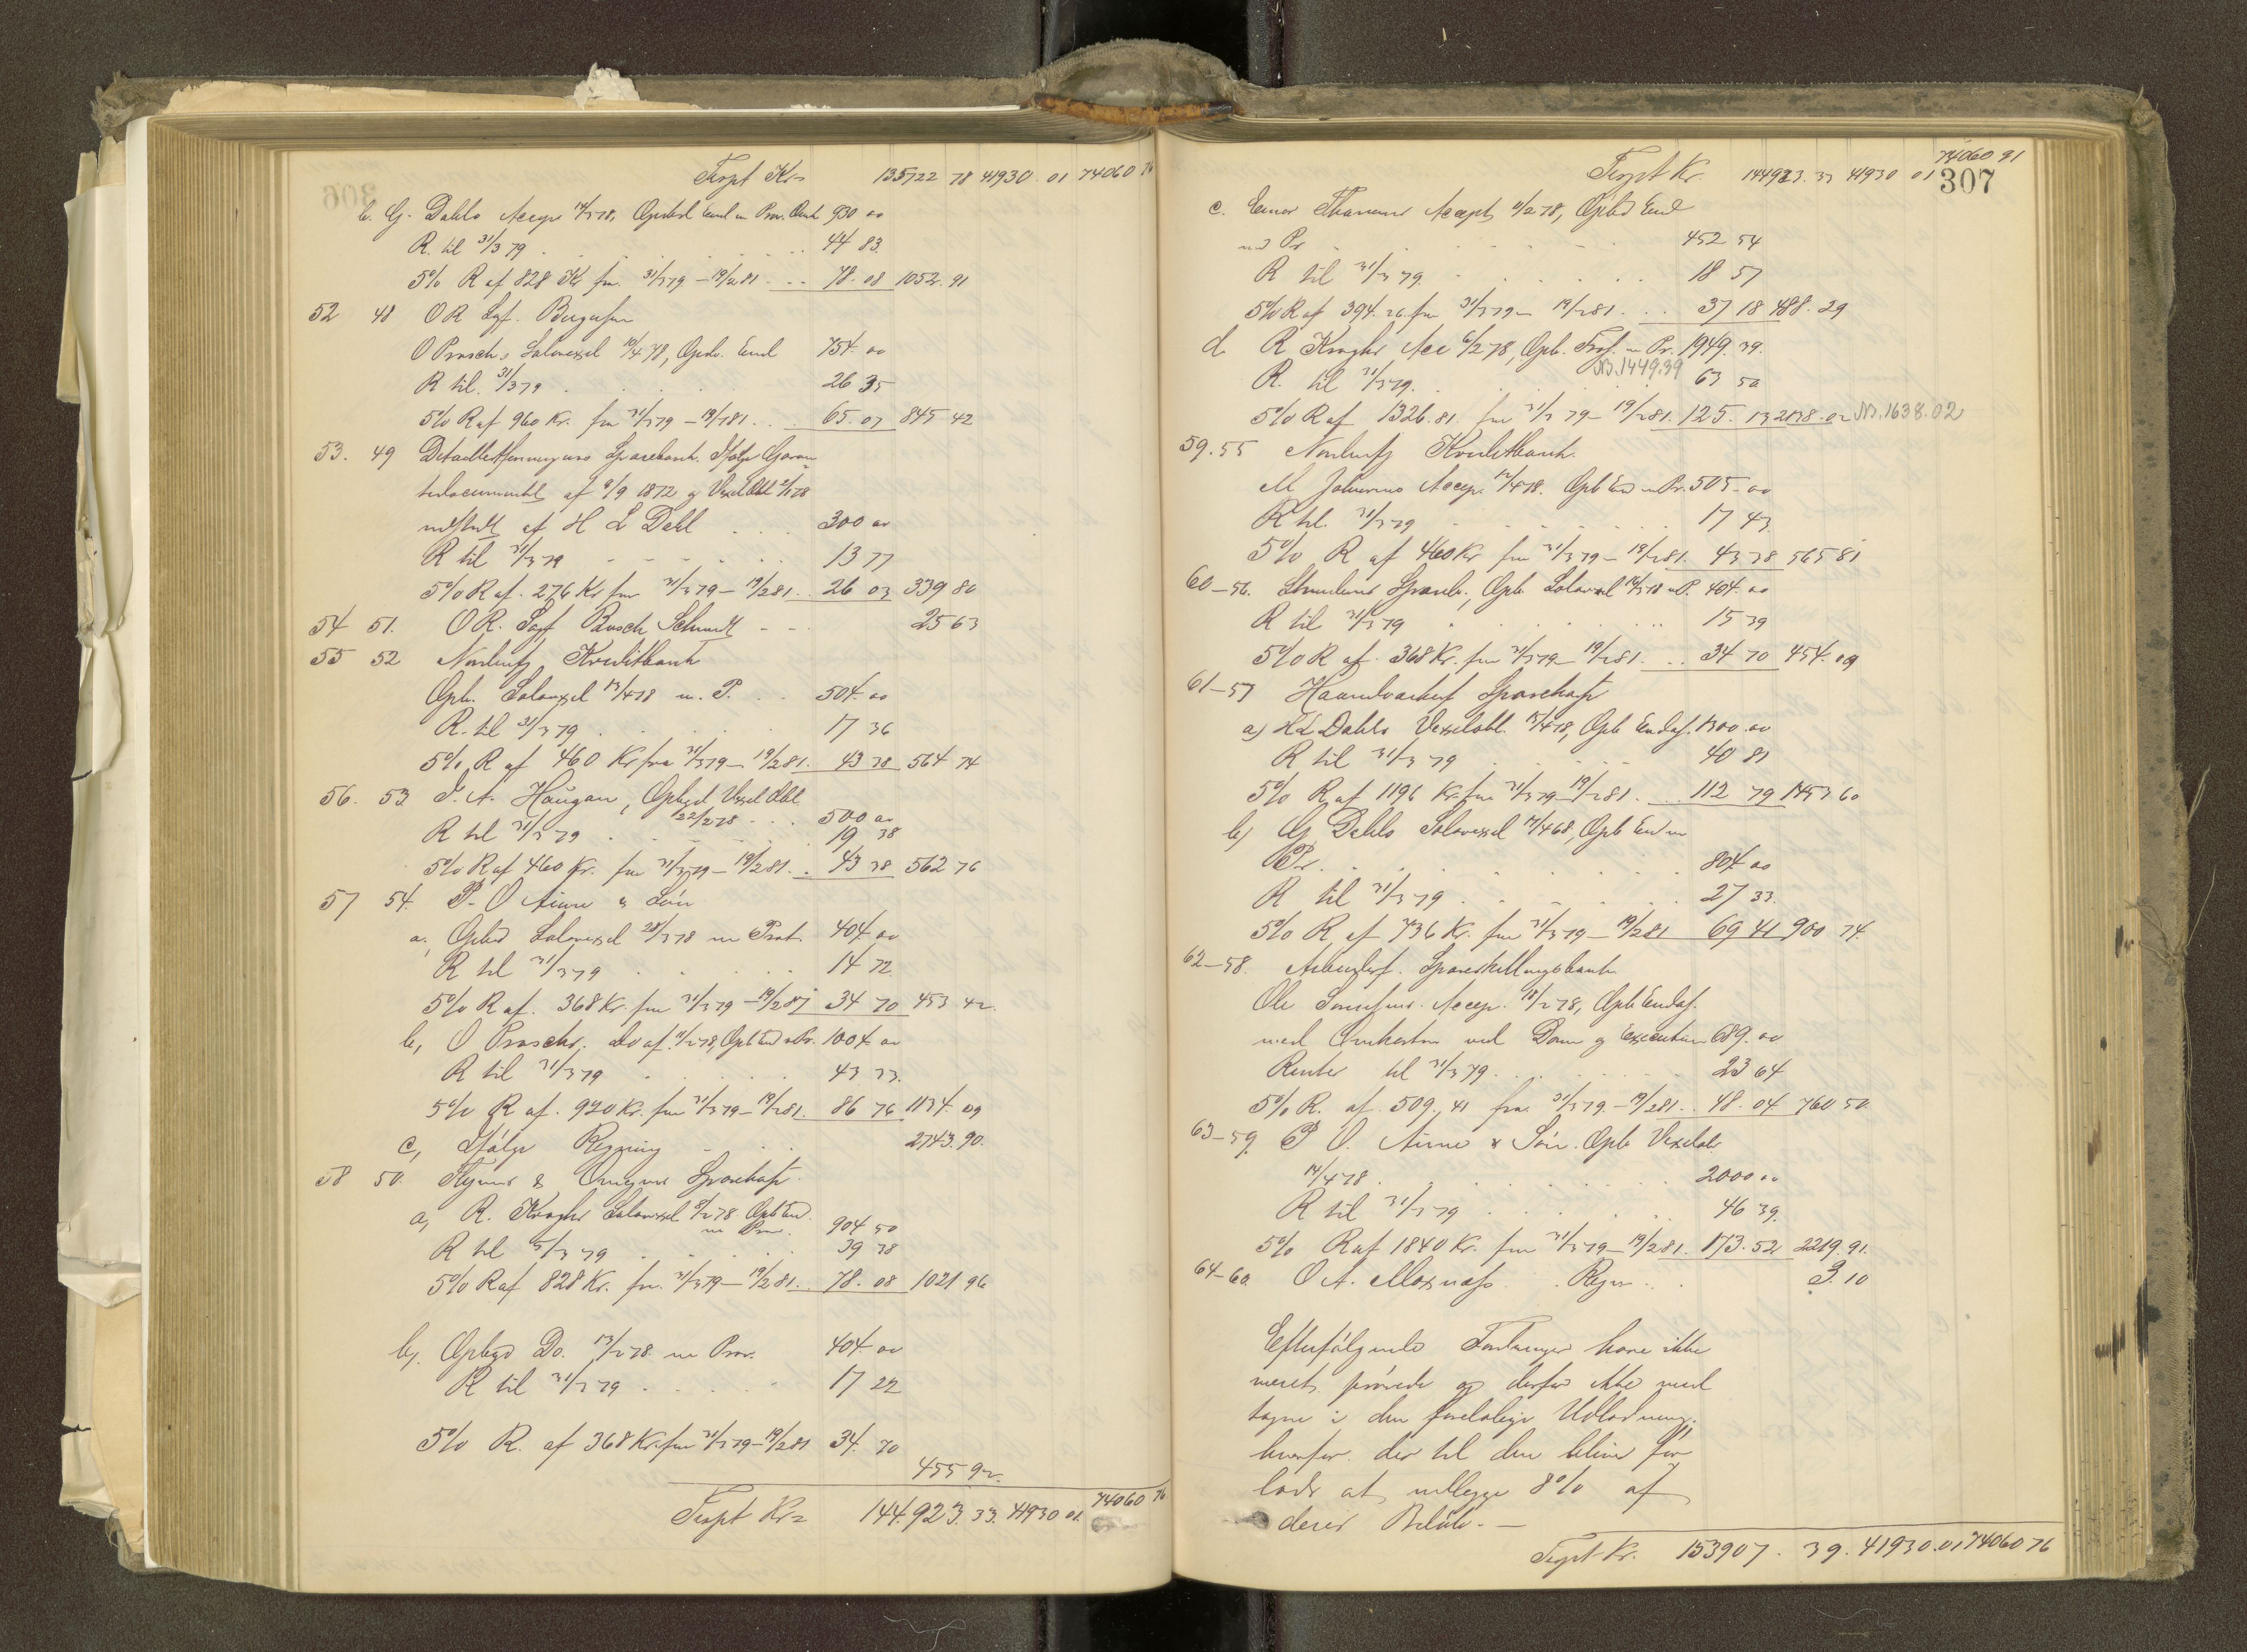 Trspt Kr 135722 78 41930.01 74060 76
b. G. Dahls Accept 14/3 78, Opbd End m Prov. Omk 930 00
R. til 31/3 79 44 83
5% R af 828 Kr fra 31/3 79 - 19/2 81 78.08 1052.91
52 48 OR Sagf. Bergersen
O Praschs Solavexel 10/4 78, Opb. End 754 00
R til 31/3 79 26 35
5% R af 960 Kr. fra 31/3 79 - 19/2 81 65.07 845 42
53. 49 Sparebank. Ifølge Garan
tidocument af 9/9 1872 og Vexel Obl
udstedt af H L Dahl 300 00
R til 31/3 79 13 77
5% R af 276 Kr fra 31/3 79 - 19/2 81 26 03 339 80
54 51. OR. Sagf Busch Schmidt 25 63
55 52 Nordenfj. Kreditbank
Opb. Solavexel 13/4 78 m. P. 504 00
R. til 31/3 79 17 36
5% R af 460 Kr fra 31/3 79 - 19/2 81. 43 38 564 74
56. 53 J. A. Haugan, Opbyd Vexel Obl
22/2 78 500 00
R til 31/3 79 19 38
5% R af 460 Kr. fra 31/3 79 - 19/2 81 43 38 562 76
57 54. P. O Aune & Søn
a. Opbd Solavexel 28/3 78 m Prot. 404 00
R til 31/3 79 14 72
5% R af. 368 Kr. fra 31/3 79 - 19/2 81 34 70 453 42
b, O Praschs. do af 11/2 78, Opb End m Pr. 1004 00
R til 31/3 79 43 33.
5% R af. 920 Kr. fra 31/3 79 - 19/2 81. 86 76 1134.09
c, Ifølge Regning 2743.90.
58 50. & Omegns Sparekasse
a, R. Kroghs Solavexel 6/2 78 Opb End
m Prov. 904 50
R til 31/3 79 39 38
5% R af 828 Kr. fra. 31/3 79 - 19/2 81. 78.08 1021 96
b, Opbyd Do. 13/2 78. m Prov. 404 00
R til 31/3 79 17 22
5% R. af 368 Kr. fra 31/3 79 - 19/2 81 34. 70
455 92.
Trspt Kr 144.923.33. 41930 01. 74060 76
Trspt Kr. 144923.33 41930 01 74060 91
307
c. Einar Thanems Accept 11/2 78, Opbd End
m Pr 452 54
R til 31/3 79. 18 57
5% R af 394.26 fra 31/3 79 - 19/2 81. 37 18 488.29
d. R Kroghs Acc 6/2 78, Opb. m Pr. 1949.39.
NB. 1449.39
R. til 31/3 79. 63 50
5% R af 1326.81. fra 31/3 79 - 19/2 81. 125.13 2138.02 NB. 1638.02
59. 55 Nordenfj Kreditbank.
M Johnsens Accep. 12/4 78. Opb End m Pr. 505.00
R til. 31/3 79 17 43.
5% R af 460 Kr fra 31/3 79 - 19/2 81. 43 38 565 81
60 - 56. Strindens Spareb., Opb Solavexel 14/3 78 m P. 404.00
R til 31/3 79 15 39
5% R af. 368 Kr. fra 31/3 79 - 19/2 81. 34 70 454.09
61 - 57 Haandværkerf Sparekasse
a) H L Dahls Vexelobl. 15/4 78, Opb Endos. 1300.00
R til 31/3 79 40 81
5% R af 1196 Kr. fra 31/3 79 - 19/2 81. 112 79 1453 60
b) G Dahls Solavexel 17/4 68, Opb End m
Pr. 804 00
R til 31/3 79 27 33.
5% R af 736 Kr. fra 31/3 79 - 19/2 81 69 41 900 74.
62 - 58. Arbeiderf. Spareskillingsbank
Ole Accep. 18/2 78, Opb Endos.
med Omkostn ved Dom og Execution 689.00
Renter til 31/3 79. 23 64
5% R. af 509,41 fra. 31/3 79 - 19/2 81. 48.04 760 50
63 - 59. P O. Aune & Søn. Opb Vexelobl
14/4 78 2000 00
R til 31/3 79 46 39.
5% R af 1840 Kr. fra 31/3 79 - 19/2 81. 173.52 2219.91.
64 - 60. O A. Moxnæss Regn. 3.10
Efterfølgende Fordringer have ikke
været prøvede og derfor ikke med
tagne i den foreløbige Udlodning,
hvorfor der til dem bliver for
lods at udlægge 8% af
deres Beløb. —
Trspt Kr. 153907.39. 41930.01 74060 76